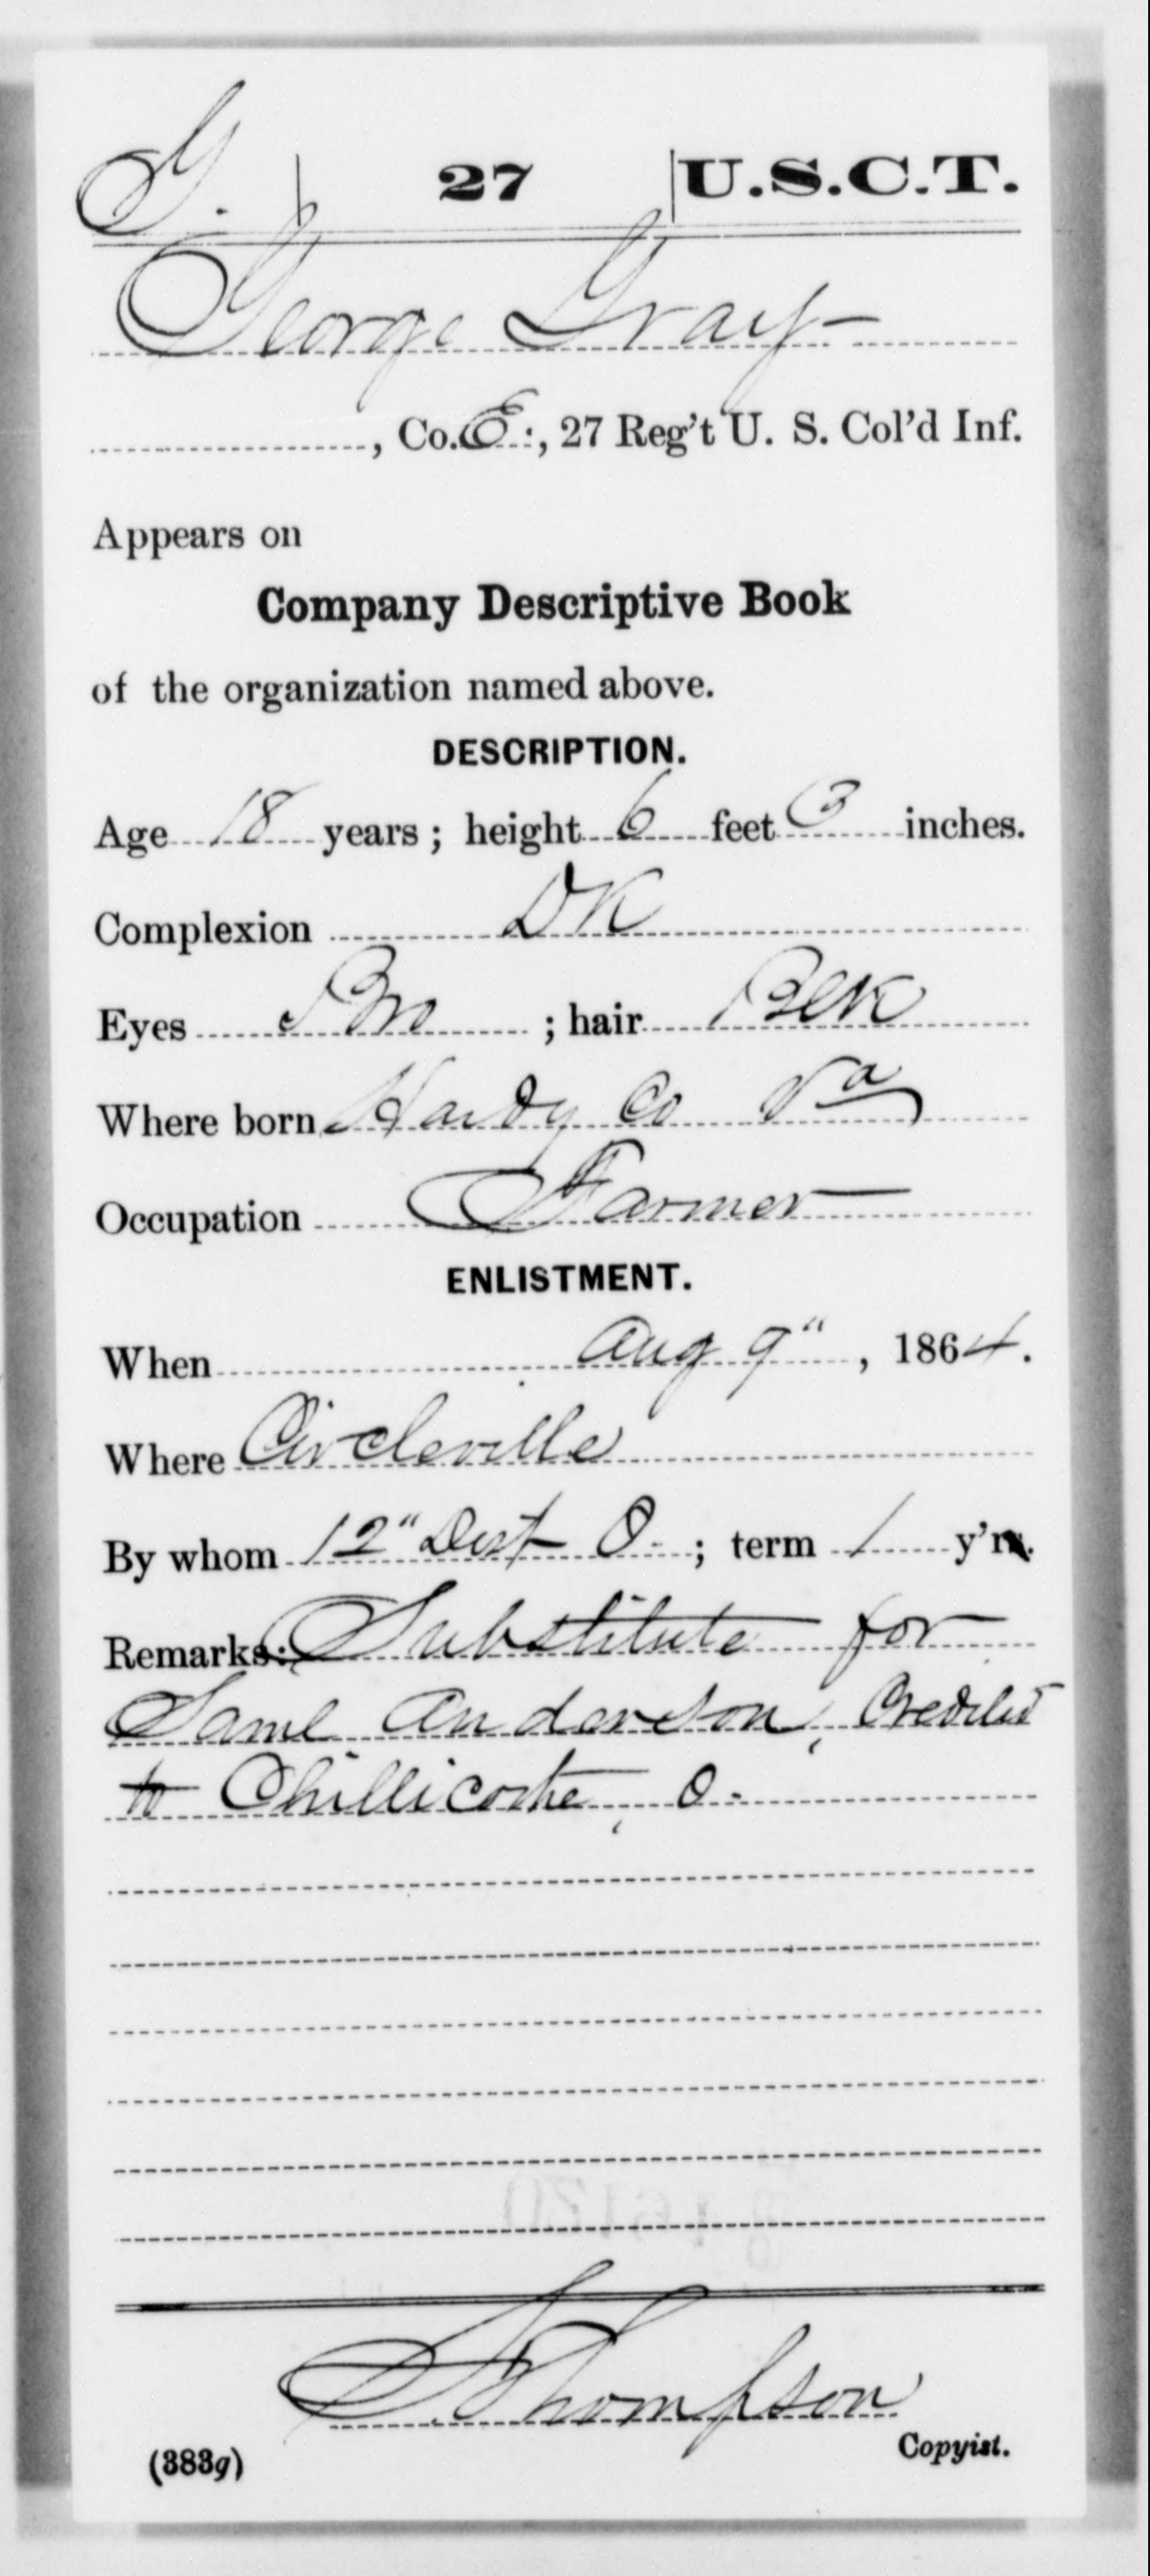 G. | 27 | U.S.C.T.
George Gray
, Co. E., 27 Reg't U. S. Col'd Inf.
Appears on
Company Descriptive Book
of the organization named above.
DESCRIPTION.
Age 18 years; height 6 feet 3 inches.
Complexion DK
Eyes Bro ; hair BlK
Where born Hardy Co Va
Occupation Farmer
ENLISTMENT.
When Aug 9", 1864.
Where Circleville
By whom 12" Dist O. ; term 1 y'r.
Remarks: Substitute for
Saml Anderson, Credited
to Chillicothe, O.
Thompson
Copyist.
(383g)